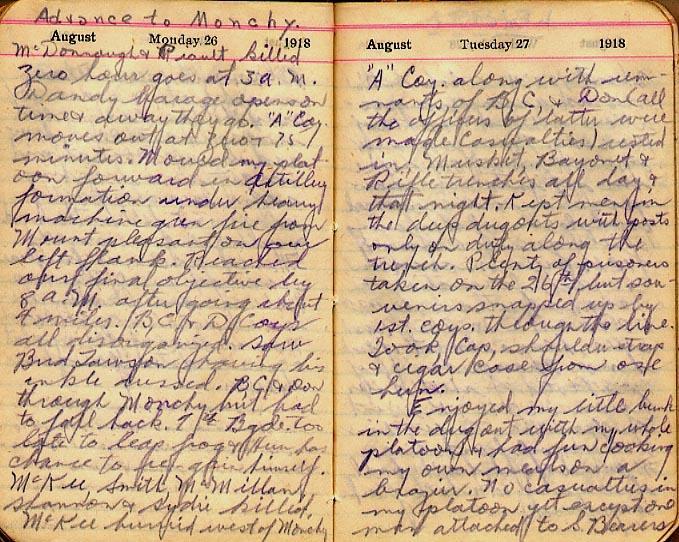 Advance to Monchy.
August Monday 26 1918
McDonnough & Pirault killed
Zero hour goes at 3 a.m.
Dandy Barage opens on
time & away they go. "A" Coy.
moves out at zero + 75
minutes. Moved my plat-
oon forward in Artillery
formation under heavy
machine gun fire from
Mount pleasant on our
left flank. Reached
our final objective by
8 a.m. after going about
4 miles. B, C & D Coys
all disorganized. Saw
Bud having his
ankle dressed. B C & Don
through Monchy but had
to fall back. 7th Bgde. too
late to leap frog & Hun has
chance to himself.
McKee Smith, McMillan,
Shannon & killed.
McKee buried west of Monchy
August Tuesday 27 1918
"A" Coy. along with rem-
nants of B, C, & Don (all
the officers of latter were
made casualties) rested
in Musket, Bayonet &
Rifle trenches all day &
that night. Kept men in
the deep dugouts with posts
only on duty along the
trench. Plenty of prisoners
taken on the 26th, but sou-
venirs snapped up by
1st. coys. through the line.
Took Cap, shoulder strap
& cigar case from one
hun.
Enjoyed my little bunk
in the dugout with my whole
platoon & had fun cooking
my own meals on a
brazier. No casualties in
my platoon yet except one
man attached to S. Bearers